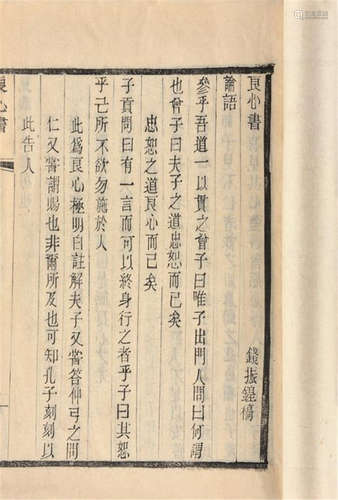 良心書
錢振鍠稿
論語
參乎吾道一以貫之曾子曰唯子出門人問曰何謂
也曾子曰夫子之道忠恕而已矣
忠恕之道良心而已矣
子貢問曰有一言而可以終身行之者乎子曰其恕
乎己所不欲勿施於人
此爲良心極明白註解夫子又嘗答仲弓之問
仁又嘗謂賜也非爾所及也可知孔子刻刻以
此告人
良心書